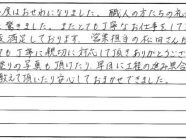 度はおせわになりました。職人の方たちの礼
驚きました。またとても丁寧なお仕事をして
満足しております。営業担当の松田さんが
も丁寧に親切に対応して頂きありがとうござ
の写真も頂けたり、毎日工程の進み具合
教えて頂いたり安心しておまかせできました。